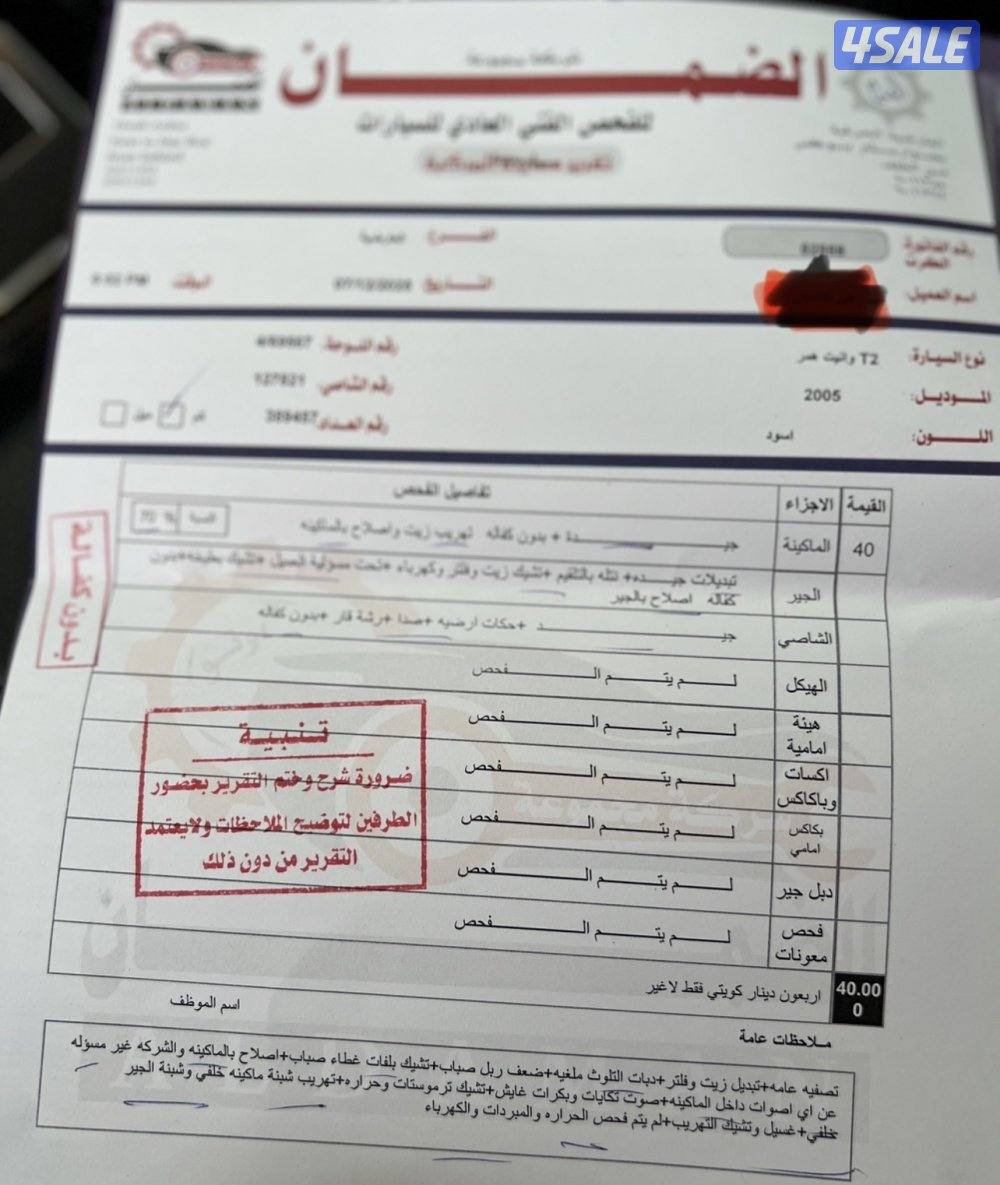 4SALE
الضمان
للفحص الفني العادي للسيارات
رقم الفاتورة
الفرع
اسم العميل:
التاريخ
الوقت
نوع السيارة: T2 وانيت همر
رقم اللوحة:
الموديل: 2005
رقم الشاصي: 127821
اللون: اسود
رقم العداد:
القيمة الاجزاء تفاصيل الفحص
40 الماكينة جيدة + بدون كفاله تهريب زيت واصلاح بالماكينه النسبة 70 %
الجير تبديلات جيده+ نتله بالتلقيم +تشيك زيت وفلتر وكهرباء +تحت مسؤلية العميل +تشيك بطيفه+بدون
كفاله اصلاح بالجير
الشاصي جيد +حكات ارضيه +صدا +رشة قار +بدون كفاله
الهيكل لم يتم الفحص
هيئة امامية لم يتم الفحص
اكسات وباكاكس لم يتم الفحص
بكاكس امامي لم يتم الفحص
دبل جير لم يتم الفحص
فحص معونات لم يتم الفحص
40.000 اربعون دينار كويتي فقط لاغير
بدون كفالة
تنبية
ضرورة شرح وختم التقرير بحضور
الطرفين لتوضيح الملاحظات ولايعتمد
التقرير من دون ذلك
اسم الموظف
ملاحظات عامة
تصفيه عامه+تبديل زيت وفلتر+دبات التلوث ملغيه+ضعف ربل صباب+تشيك بلفات غطاء صباب+اصلاح بالماكينه والشركه غير مسؤله
عن اي اصوات داخل الماكينه+صوت تكايات وبكرات غايش+تشيك ترموستات وحراره+تهريب شبنة ماكينه خلفي وشبنة الجير
خلفي+غسيل وتشيك التهريب+لم يتم فحص الحراره والمبردات والكهرباء